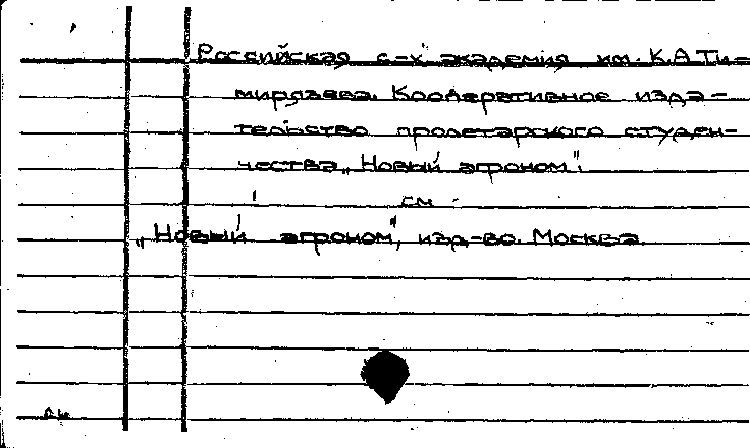 Российская с-х академия им. К.А. Ти-
мирязева. Кооперативное изда-
тельство пролетарского студен-
чества „Новый агроном".
см.
„Новый агроном", изд-во. Москва.